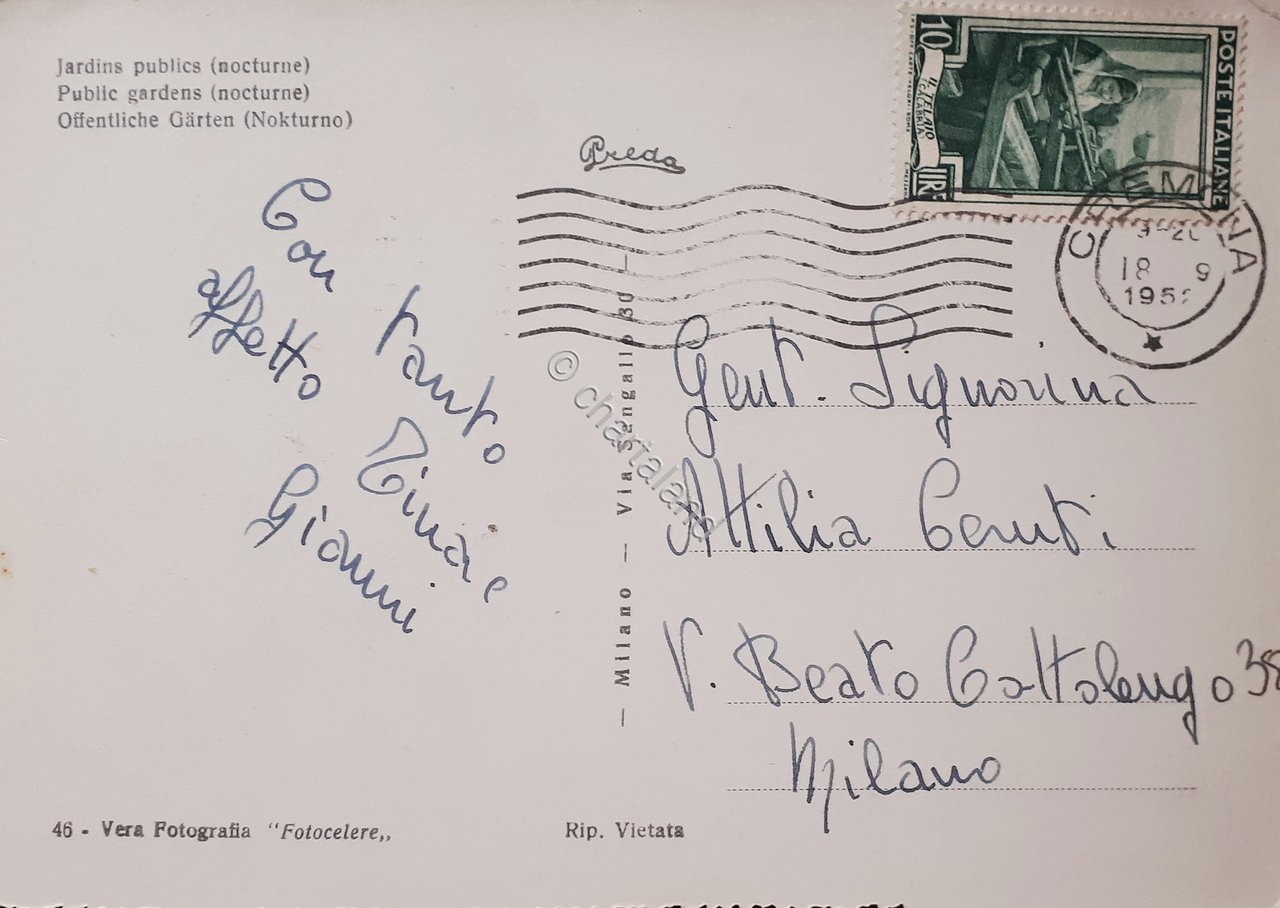 Jardins publics (nocturne)
Public gardens (nocturne)
Offentliche Gärten (Nokturno)
Preda
10
POSTE ITALIANE
IL TELAIO
CALABRIA
LIRE
CREMONA
18 9
195
Con tanto
affetto Tina e
Gianni
— Milano — Via Sangallo 30 —
© chartaland
Gent. Signorina
Attilia Ceruti
V. Beato Cottolengo 38
Milano
46 - Vera Fotografia “Fotocelere„
Rip. Vietata